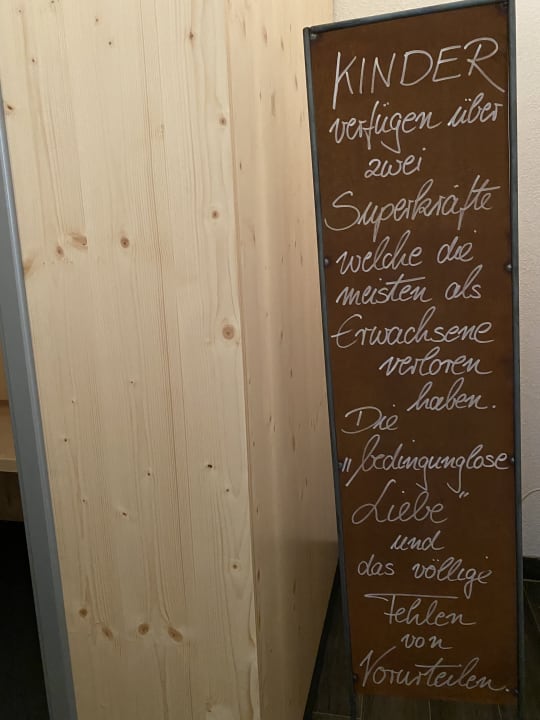 KINDER
verfügen über
zwei
Superkräfte
welche die
meisten als
Erwachsene
verloren
haben.
Die
„bedingunglose
Liebe"
und
das völlige
Fehlen
von
Vorurteilen.